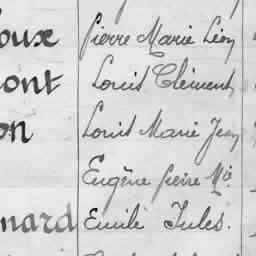 oux Pierre Marie Léon
ont Louis Clément
on Louis Marie Jean
Eugène Pierre Mie
nard Emile Jules.